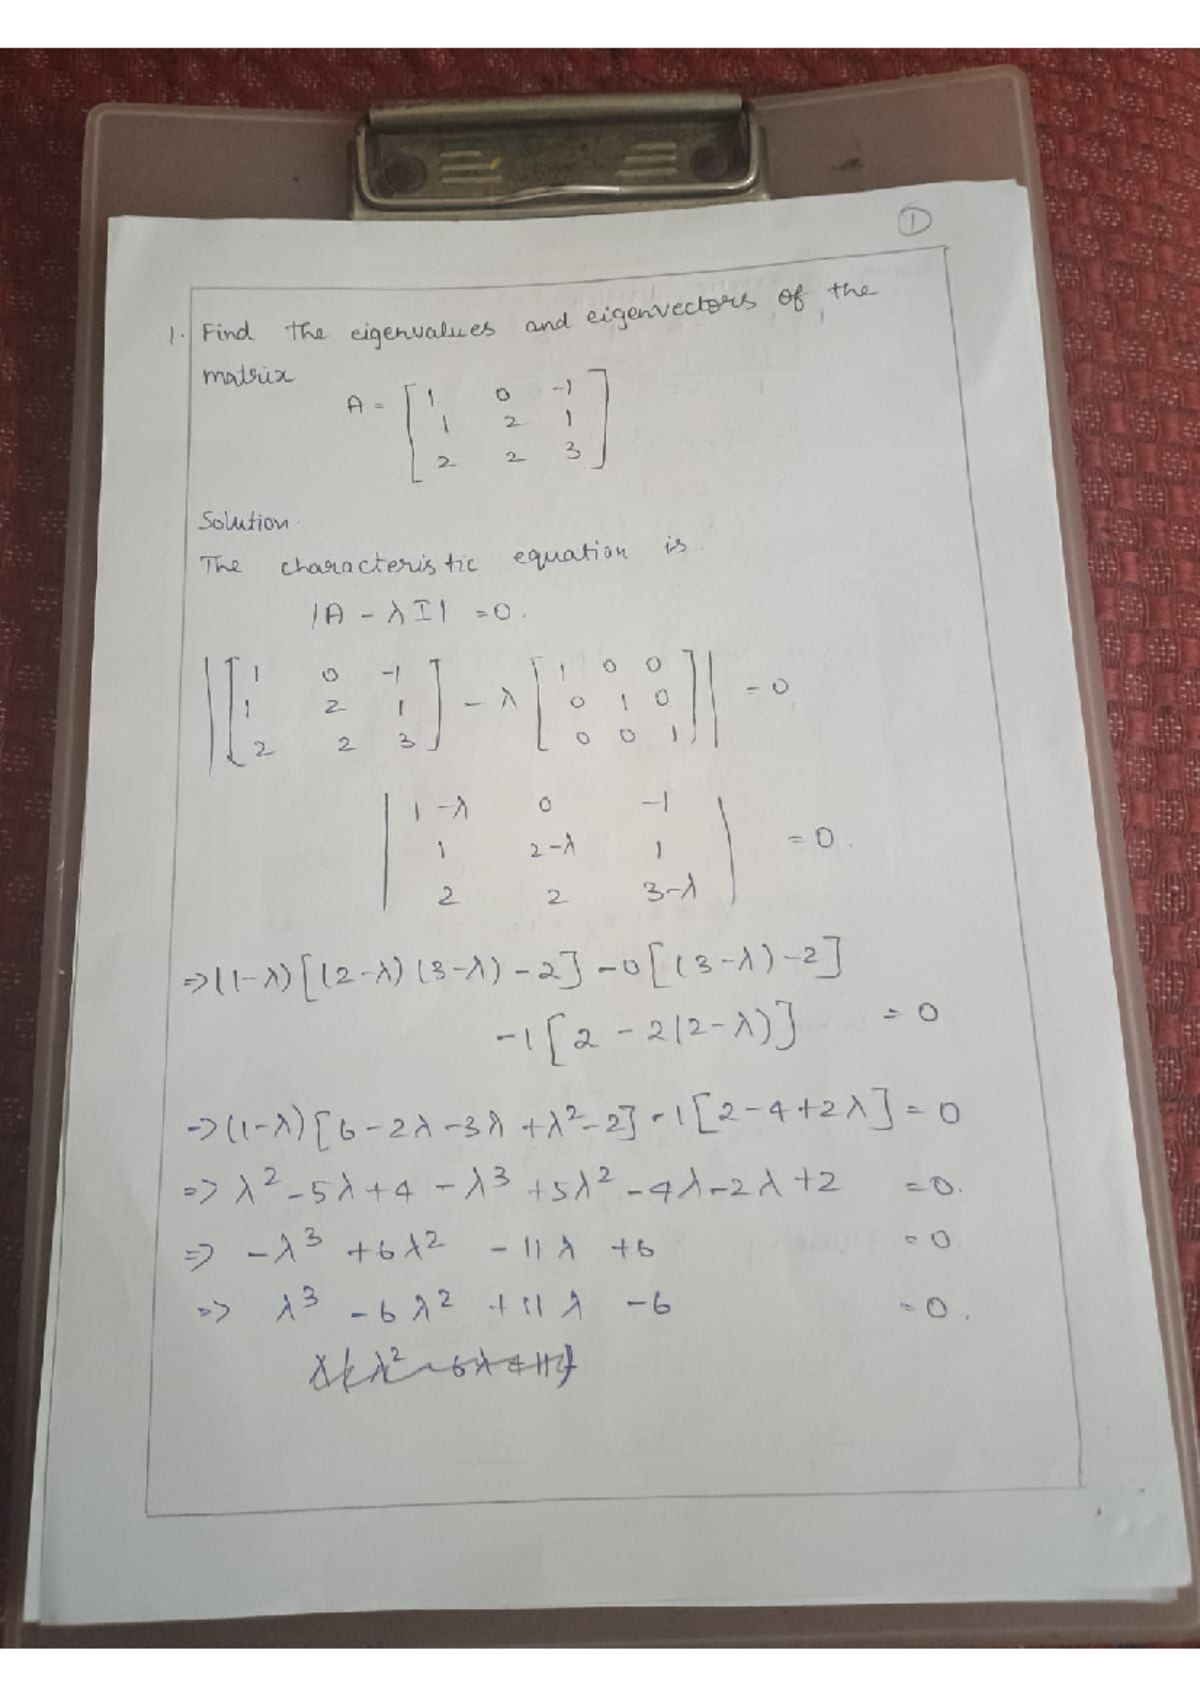 1
1. Find the eigenvalues and eigenvectors of the
matrix
A = [ 1 0 -1
1 2 1
2 2 3 ]
Solution.
The characteristic equation is.
|A - λI| = 0.
| [ 1 0 -1
1 2 1
2 2 3 ] - λ [ 1 0 0
0 1 0
0 0 1 ] | = 0
| 1-λ 0 -1
1 2-λ 1
2 2 3-λ | = 0.
=> (1-λ) [(2-λ) (3-λ) - 2] - 0 [(3-λ) - 2]
-1 [2 - 2(2-λ)] = 0
=> (1-λ) [6 - 2λ - 3λ + λ² - 2] - 1 [2 - 4 + 2λ] = 0
=> λ² - 5λ + 4 - λ³ + 5λ² - 4λ - 2λ + 2 = 0.
=> -λ³ + 6λ² - 11λ + 6 = 0.
=> λ³ - 6λ² + 11λ - 6 = 0.
λ(λ² - 6λ + 11)